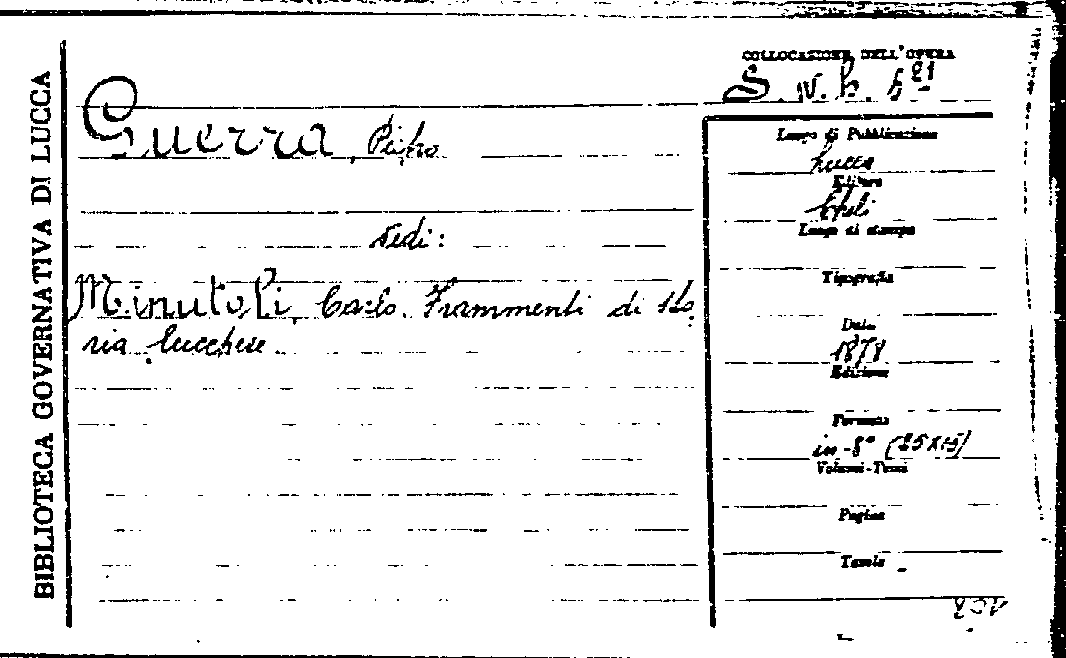 BIBLIOTECA GOVERNATIVA DI LUCCA
COLLOCAZIONE DELL'OPERA
Guerra,
Vedi:
Minutoli, Carlo. Frammenti di sto-
ria lucchese.
Luogo di Pubblicazione
Lucca
Editore
Cheli
Luogo di stampa
Tipografia
Data
1878
Edizione
Formato
in-8° (25x15)
Volumi-Tomi
Pagine
Tavole